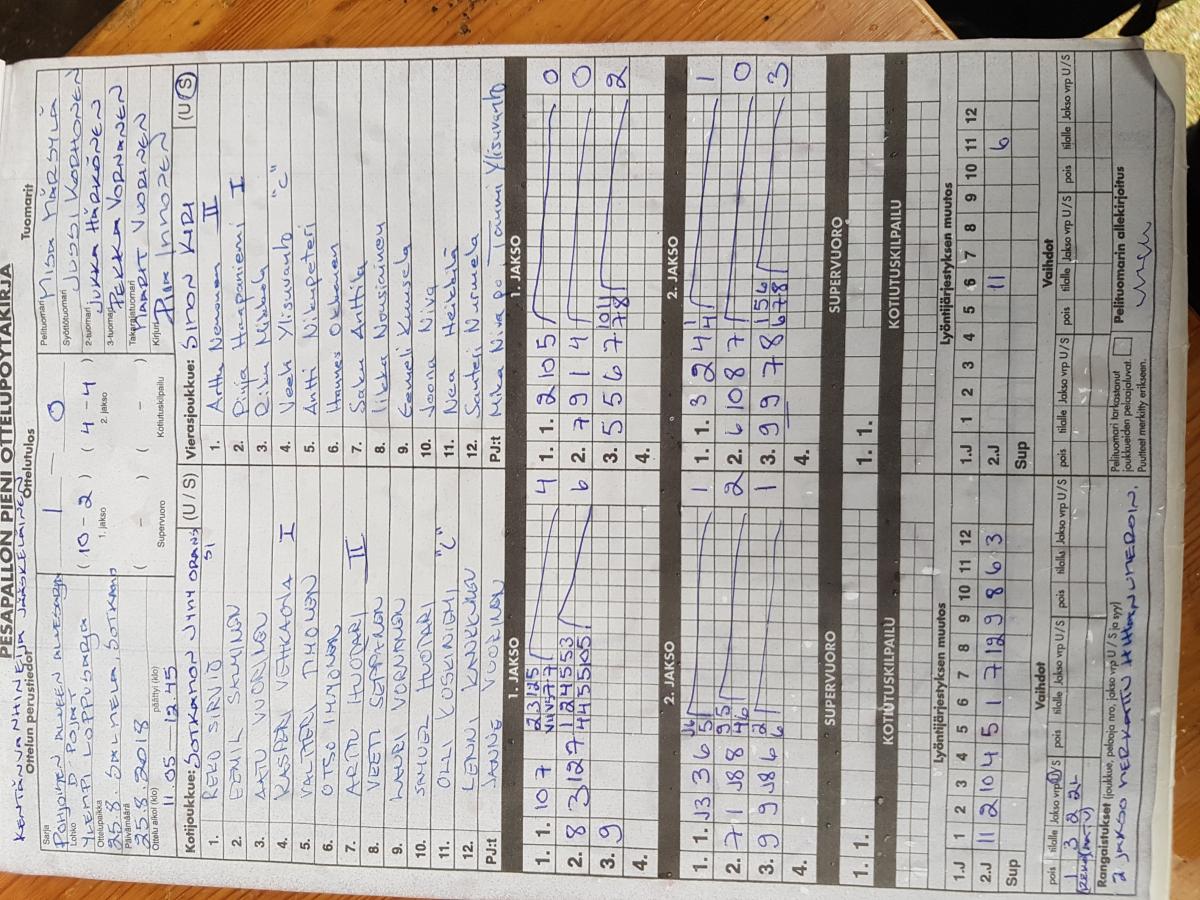 PESÄPALLON PIENI OTTELUPÖYTÄKIRJA
KENTÄNVANHIN EIJA JÄÄSKELÄINEN
Ottelun perustiedot
Ottelutulos
Tuomarit
Sarja
POHJOINEN ALUEEN ALUESARJA
Lohko
D-POJAT
YLEMPI LOPPUSARJA
Ottelupaikka
25.8. SALMELA SOTKAMO
Päivämäärä
25.8.2018
Ottelu alkoi (klo)
päättyi (klo)
11.05 — 12.45
1 — 0
( 10 - 2 ) ( 4 - 4 )
1. jakso
2. jakso
( - ) ( - )
Supervuoro
Kotiutuskilpailu
Pelituomari
Syöttötuomari
JUSSI KORHONEN
2-tuomari
JUKKA HÄRKÖNEN
3-tuomari
PEKKA VORNANEN
Takarajatuomari
MAARIT VUORINEN
Kirjuri
Piia Innonen
Kotijoukkue: SOTKAMON JYMY ORANSSI (U / S)
1. REKO SIRVIÖ
2. EEMIL SALMINEN
3. AATU VUORINEN
4. KASPERI VEHKAOJA I
5. VALTTERI TIHONEN
6. OTSO IMMONEN
7. ARTTU HUOTARI II
8. VEETI SEPPÄNEN
9. LAURI VORNANEN
10. SAMUEL HUOTARI
11. OLLI KOSKINIEMI "C"
12. LENNI KANKKUNEN
PJ:t JANNE VUORINEN
Vierasjoukkue: SIMON KIRI (U / S)
1. Arttu Nemonen II
2. Piija Haapaniemi I
3. Riku Mikkola
4. Veeti Ylisuvanto "C"
5. Antti Nikupeteri
6. Hannes Oksanen
7. Saku Anttila
8. Iikka Nousiainen
9. Eemeli Kuusela
10. Joona Niva
11. Nea Heikkilä
12. Santeri Nurmela
PJ:t Mika Niva, Jaana Ylisuvanto
1. JAKSO
1. 1. 10 7 4
2. 8 3 12 7 6
3. 9
4.
1. JAKSO
1. 1. 2 10 5 0
2. 7 9 1 4 0
3. 5 5 6 7 2
4.
2. JAKSO
1. 1. 3 3 6 1
2. 7 1 8 8 2
3. 9 9 8 6 1
4.
2. JAKSO
1. 1. 3 2 4 1
2. 6 10 8 7 0
3. 9 9 7 8 3
4.
SUPERVUORO
1. 1.
SUPERVUORO
1. 1.
KOTIUTUSKILPAILU
KOTIUTUSKILPAILU
Lyöntijärjestyksen muutos
1 2 3 4 5 6 7 8 9 10 11 12
1.J
2.J 11 2 10 4 5 1 7 12 9 8 6 3
Sup
Lyöntijärjestyksen muutos
1.J 1 2 3 4 5 6 7 8 9 10 11 12
2.J 11 6
Sup
Vaihdot
pois tilalle Jakso vrp U / S pois tilalle Jakso vrp U / S pois tilalle Jakso vrp U / S
1 3 2 2L
Vaihdot
pois tilalle Jakso vrp U / S pois tilalle Jakso vrp U / S pois tilalle Jakso vrp U / S
Rangaistukset (joukkue, pelaaja nro, jakso vrp U / S ja syy)
2 JAKSO MERKATTU HIHANUMEROIN.
Pelituomari tarkastanut
joukkueiden pelaajaluvat.
Puutteet merkitty erikseen.
Pelituomarin allekirjoitus